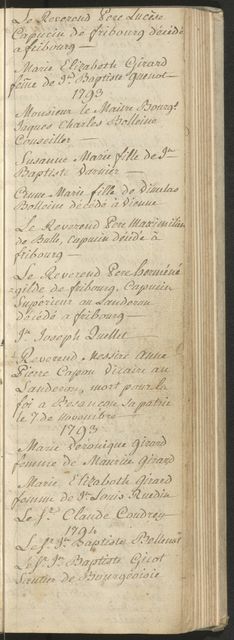 Le Reverend Pere Lucien
Capucin de fribourg décédé
a fribourg —
Marie Elizabeth Girard
feme de Jn Baptiste Quenot —
1793
Monsieur le Maitre Bourgs
Jaques Charles Bolleine
Conseiller —
Susanne Marie fille de Jn
Baptiste Varnier —
Marie fille de
décédé a Vienne
Le Reverend Pere Maximilian
de Balle, Capucin décédé à
fribourg —
Le Reverend Pere herméné-
gilde de fribourg, Capucin
Supérieur au Landeron
décédé a fribourg —
Jn Joseph Quellet —
Reverend Messire Anne
Pierre Capon Vicaire au
Landeron, mort pour la
foi a Besancon sa patrie
le 7 de novembre —
1793
Marie Veronique Girard
femme de Maurice Girard
Marie Elizabeth Girard
femme de Jn Louis Ruedin
Le Sr Claude Coudrey
1794
Le Sr Jn Baptiste Bellenot
Le Sr Jn Baptiste Gicot
de Bourgeoisie